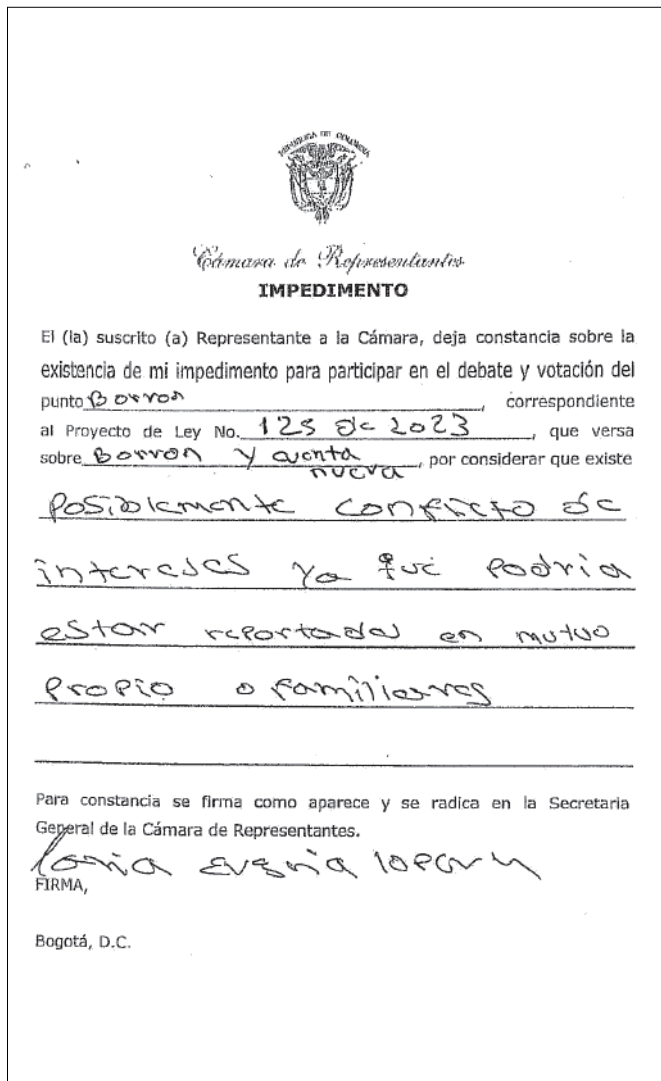 REPUBLICA DE COLOMBIA
Cámara de Representantes
IMPEDIMENTO
El (la) suscrito (a) Representante a la Cámara, deja constancia sobre la
existencia de mi impedimento para participar en el debate y votación del
punto Borron, correspondiente
al Proyecto de Ley No. 125 de 2023, que versa
sobre Borron y cuenta nueva, por considerar que existe
Posiblemente conflicto de
intereses ya que podria
estar reportados en mutuo
propio o familiares
Para constancia se firma como aparece y se radica en la Secretaria
General de la Cámara de Representantes.
Eugenia Lopera
FIRMA,
Bogotá, D.C.